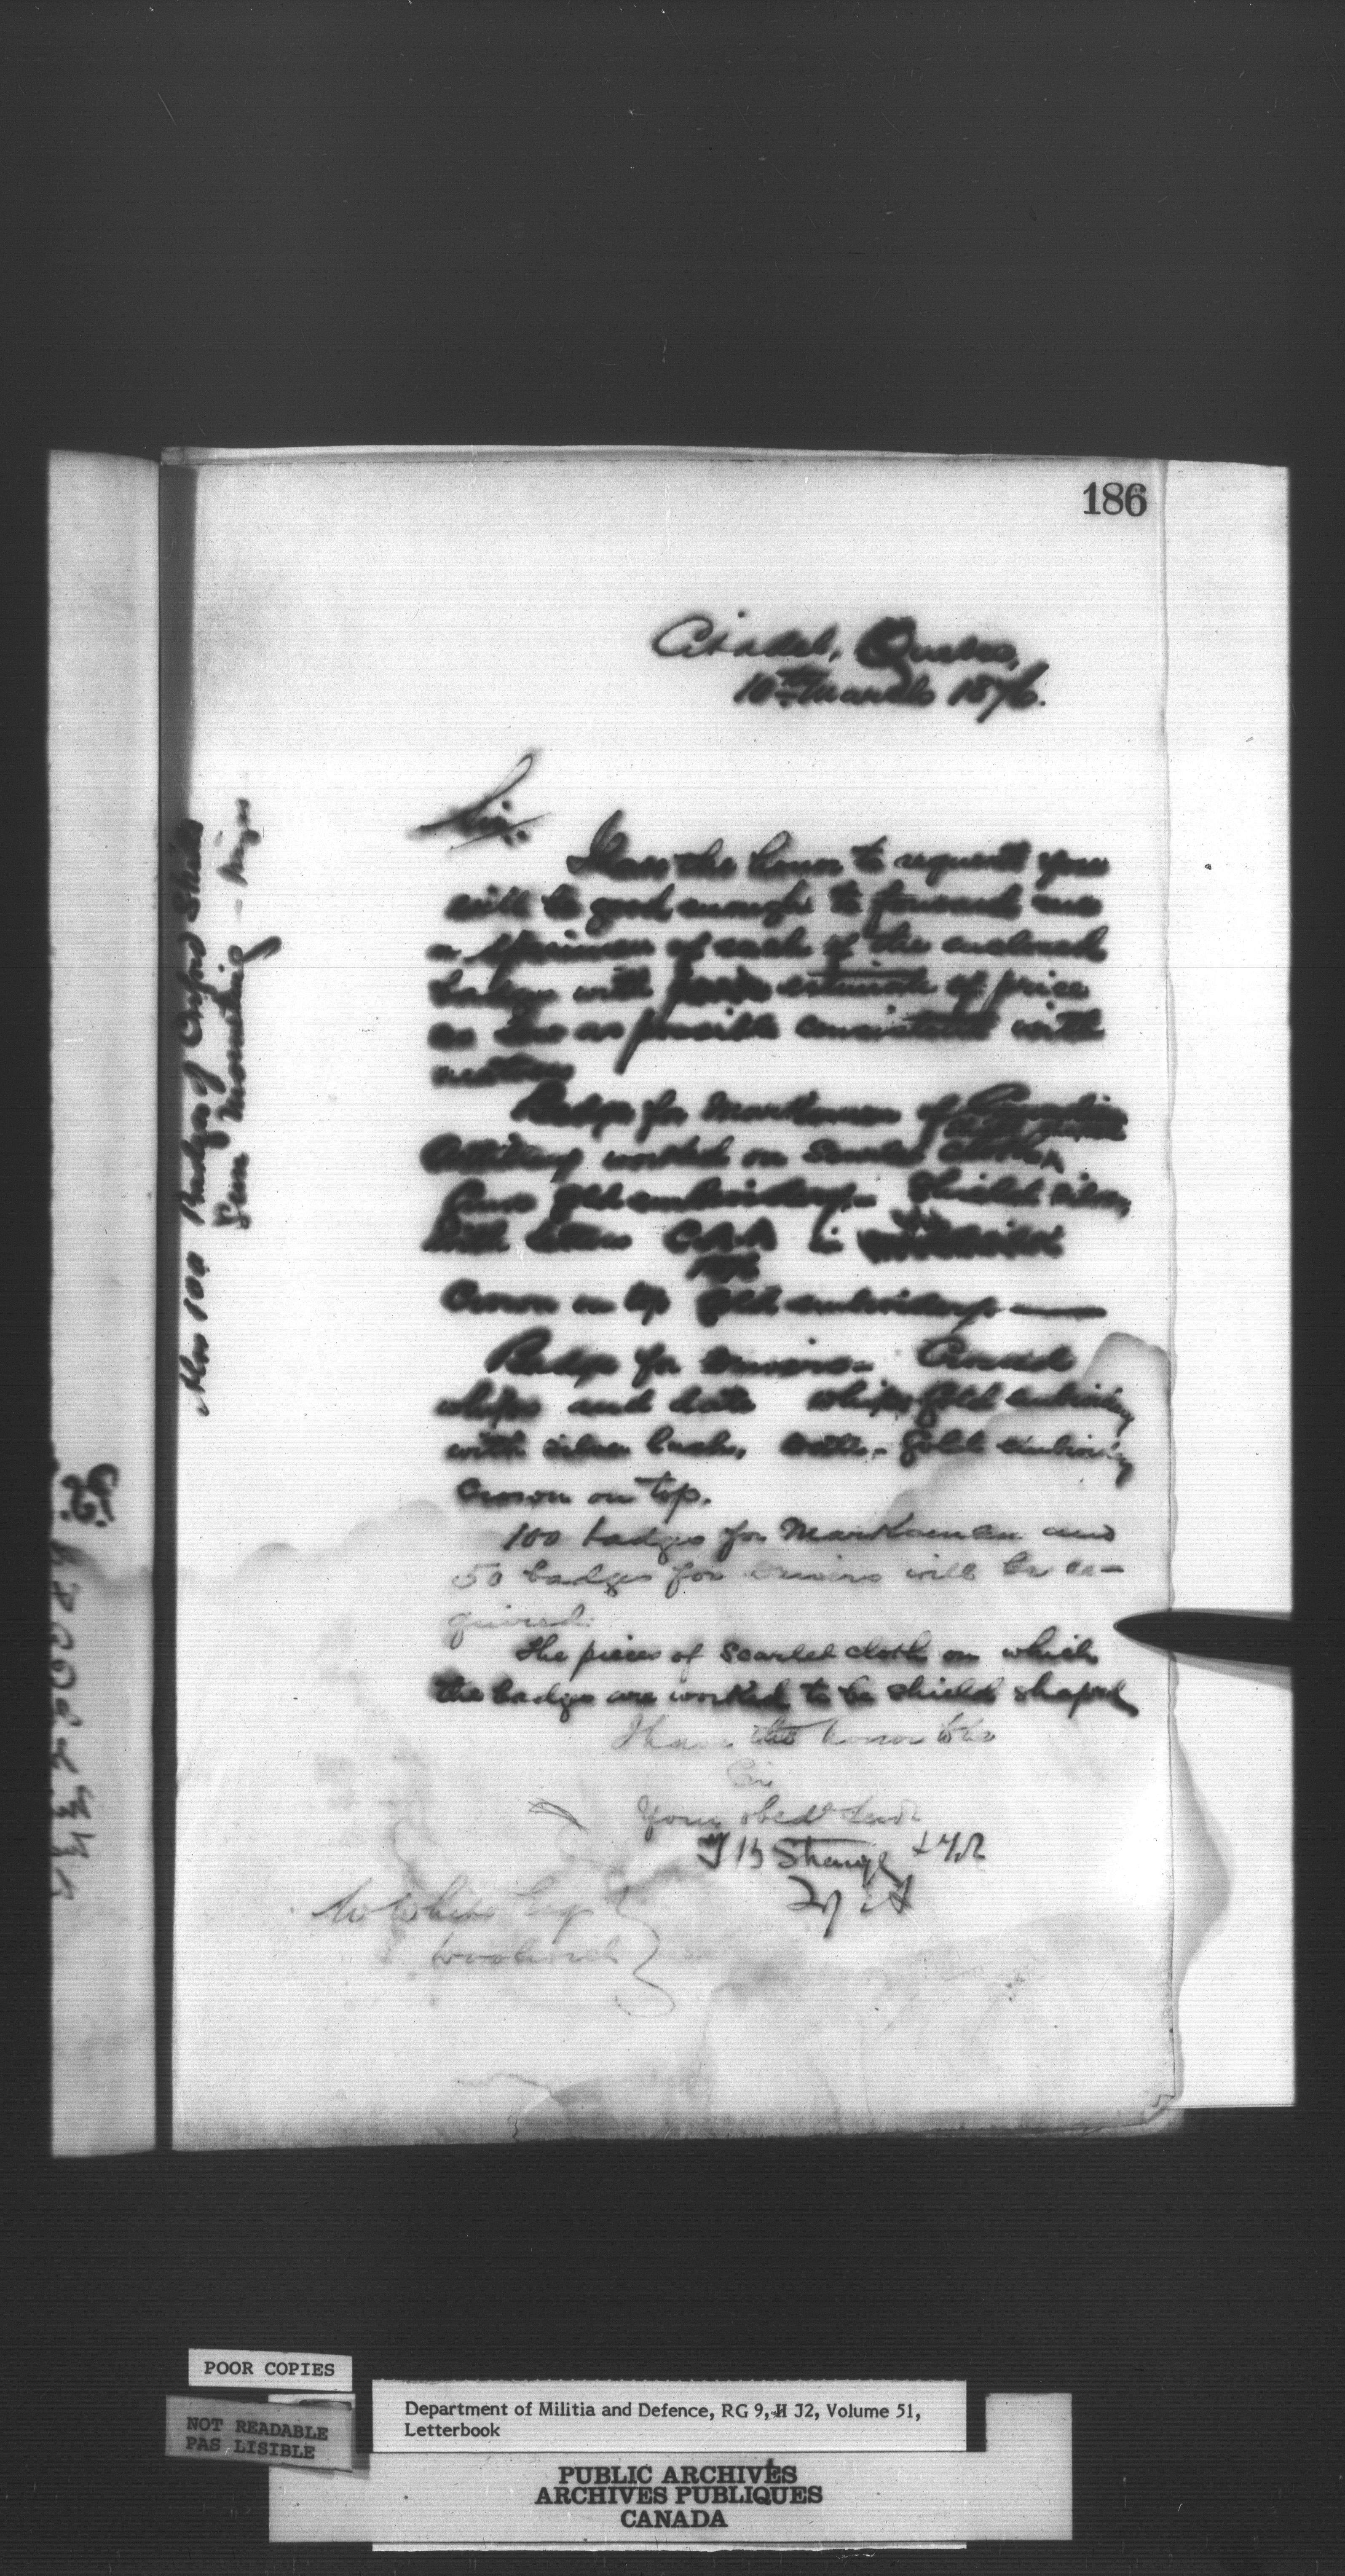 186
Citadel, Quebec,
10th March 1876.
Sir,
I have the honor to request you
will be good enough to forward me
a specimen of each of the enclosed
badges with estimate of price
as low as possible consistent with
neatness
Badge for Marksmen of Canadian
Artillery worked on Scarlet cloth
Guns Gold embroidery - Shield silver
with letters C.G.A in
1876
Crown on top Gold embroidery —
Badge for Drivers - Crossed
whips and date whips gold embroidery
with silver lash, date - gold embroidery
Crown on top.
100 badges for Marksmen and
50 badges for Drivers will be re-
quired.
The pieces of Scarlet cloth on which
the badges are worked to be shield shaped
I have the honor to be
Sir
Your obedt Servt
T B Strange Lt Col
White Esq
Woolwich
Also 100 Badges of
Gun Mounting - Prizes
POOR COPIES
NOT READABLE
PAS LISIBLE
Department of Militia and Defence, RG 9, II J2, Volume 51,
Letterbook
PUBLIC ARCHIVES
ARCHIVES PUBLIQUES
CANADA